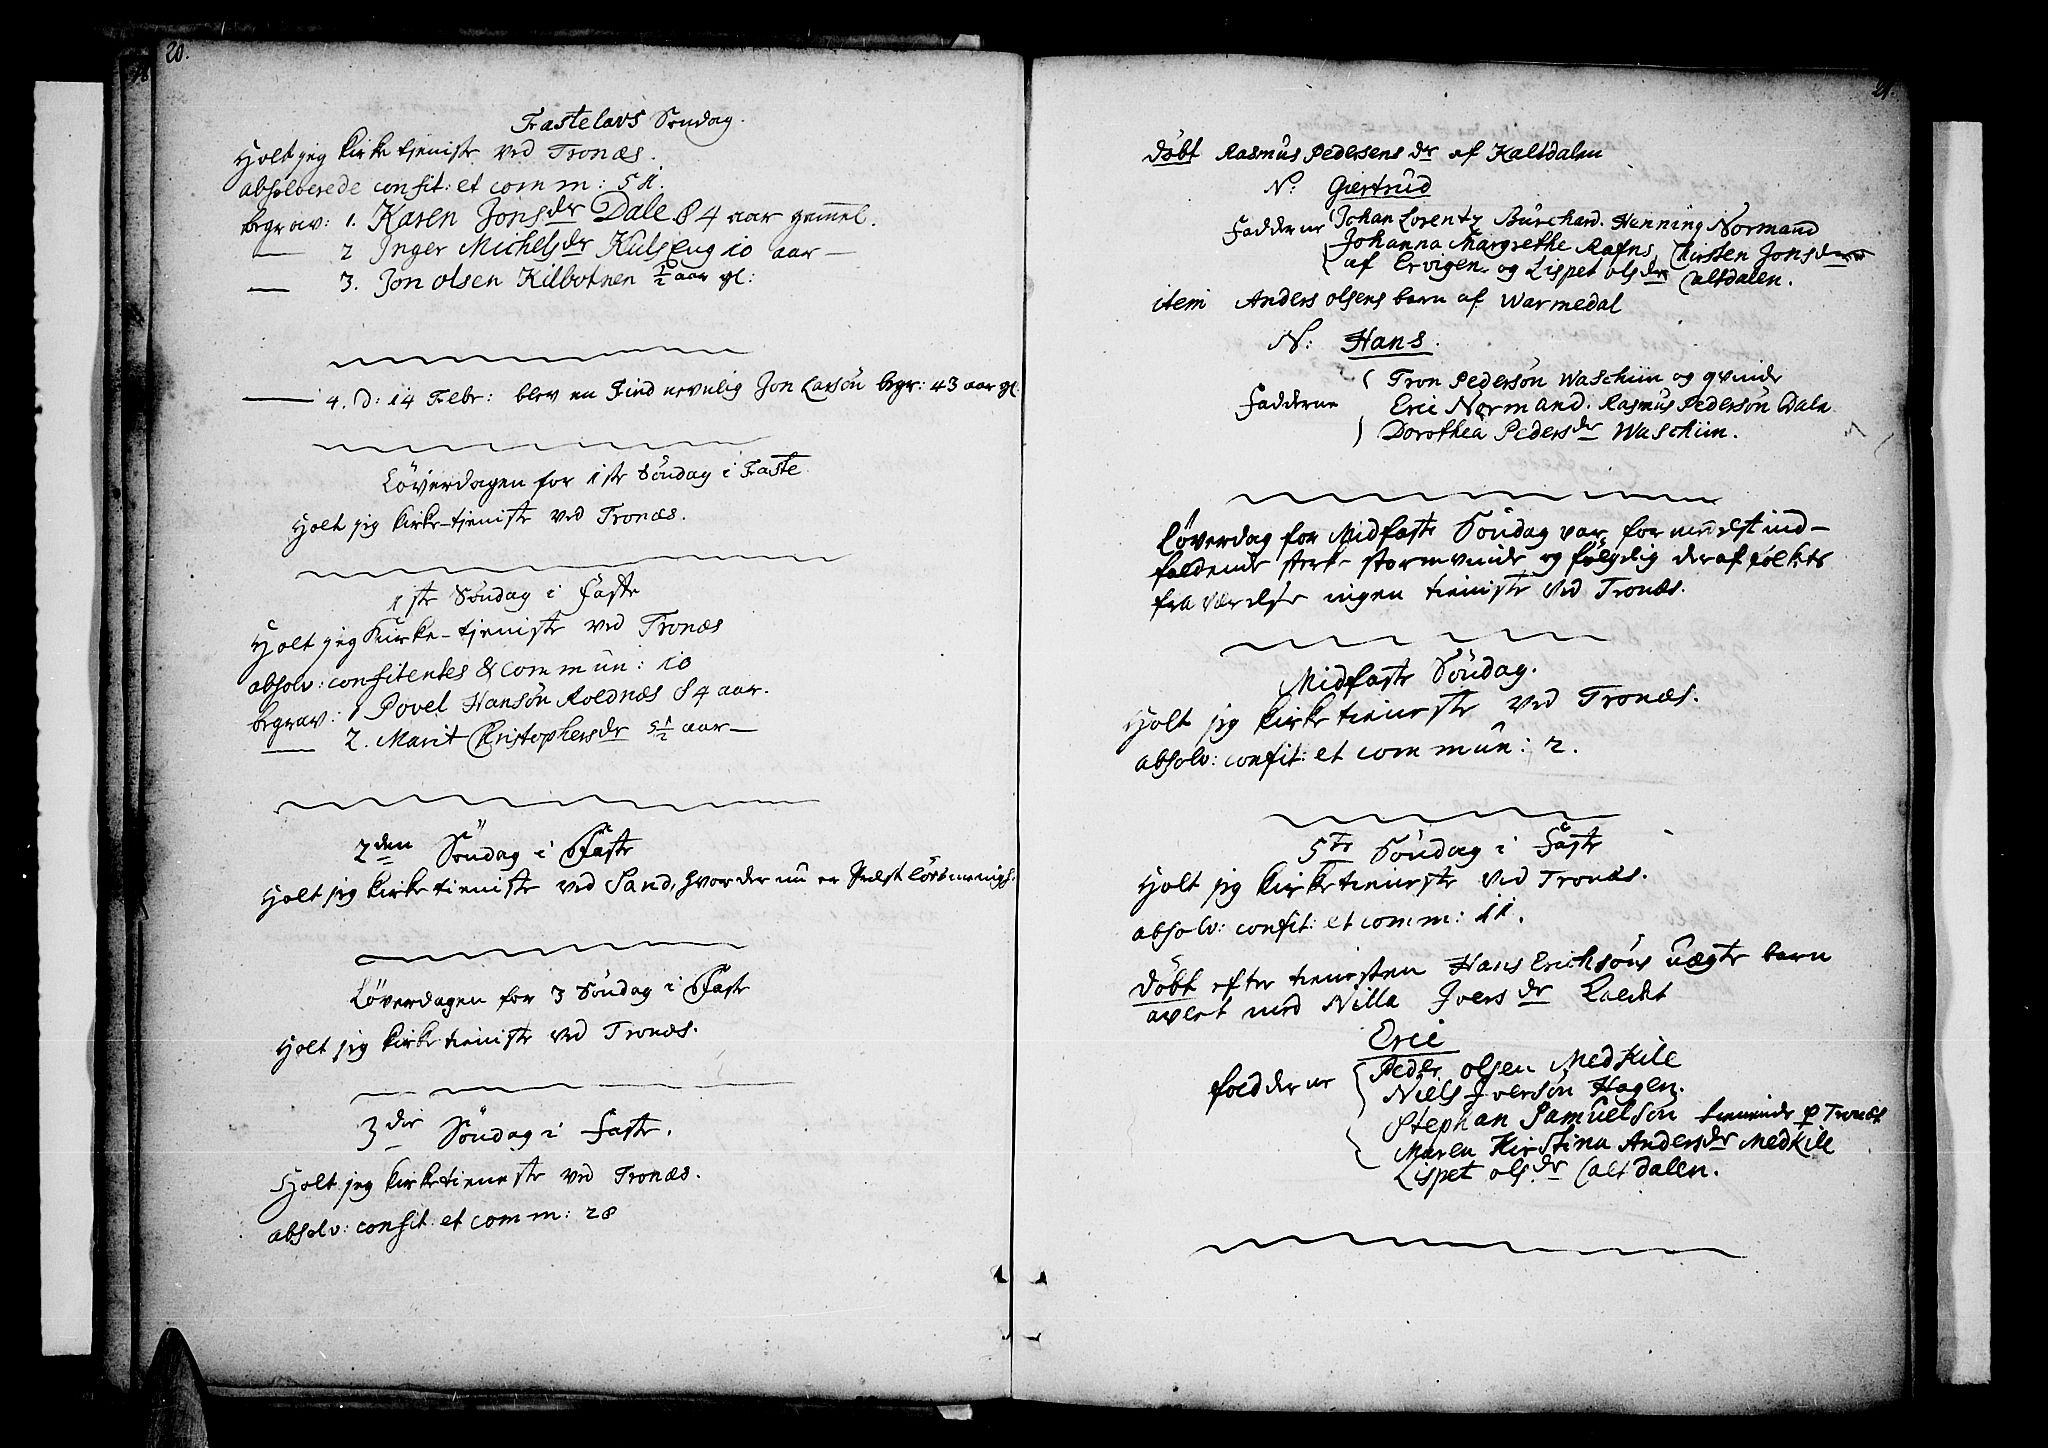 20.
Fastelavs Søndag.
Holt jeg kirke tjeniste ved Tronæs.
absolverede confit: et comm: 51.
begrav: 1. Karen Jonsdr Dale 84 aar gammel.
— 2 Inger Michelsdr Kulseng 10 aar —
— 3. Jon olsen Kilbotnen ½ aar gl:
— 4. D: 14 Febr: blev en Find nevnlig Jon Larsøn begr: 43 aar gl.
Løverdagen for 1ste Søndag i Faste
Holt jeg kirke-tjeniste ved Tronæs.
1ste Søndag i Faste
Holt jeg Kirke-tjeniste ved Tronæs
absolv: confitentes & commun: 10
begrav: 1 Povel Hansøn Roldnæs 84 aar.
— 2. Marit Christophersdr 5½ aar —
2den Søndag i Faste
Holt jeg kirke tieniste ved Sand, hvor der nu er Præst løst menigh.
Løverdagen for 3 Søndag i Faste
Holt jeg kirke tieniste ved Tronæs.
3die Søndag i Faste.
Holt jeg kirke tieneste ved Tronæs.
absolv: confit: et comm: 28
21.
døbt Rasmus Pedersens dr af Kaltdalen
N: Giertrud
Fadderne Johan Lorentz Burchard. Henning Normand
Johanna Margrethe Rafns, Kirsten Jonsdr
af Ervigen og Lispet olsdr Caltdalen.
item Anders olsens barn af Warmedal
N: Hans.
Tron Pedersøn Waschiin og qvinde
Fadderne Eric Normand. Rasmus Pedersøn Dale
Dorothea Pedersdr Waschiin.
Løverdag for Midfaste Søndag var formedelst ind-
faldende sterk stormvinde og følgelig deraf folkets
fraværelse ingen tieniste ved Tronæs.
Midfaste Søndag.
Holt jeg kirke tieneste ved Tronæs.
absolv: confit: et commun: 2.
5te Søndag i Faste
Holt jeg kirke tieneste ved Tronæs.
absolv: confit: et comm: 11.
døbt efter tienesten Hans Erichsøns uægte barn
avlet med Nilla Iversdr
Eric
fadderne Peder olsen Medkile
Niels Iversøn Hagen.
Stephan Samuelsøn tienende p Tronæs
Maren Kirstina Andersdr Medkile
Lispet olsdr Caltdalen.